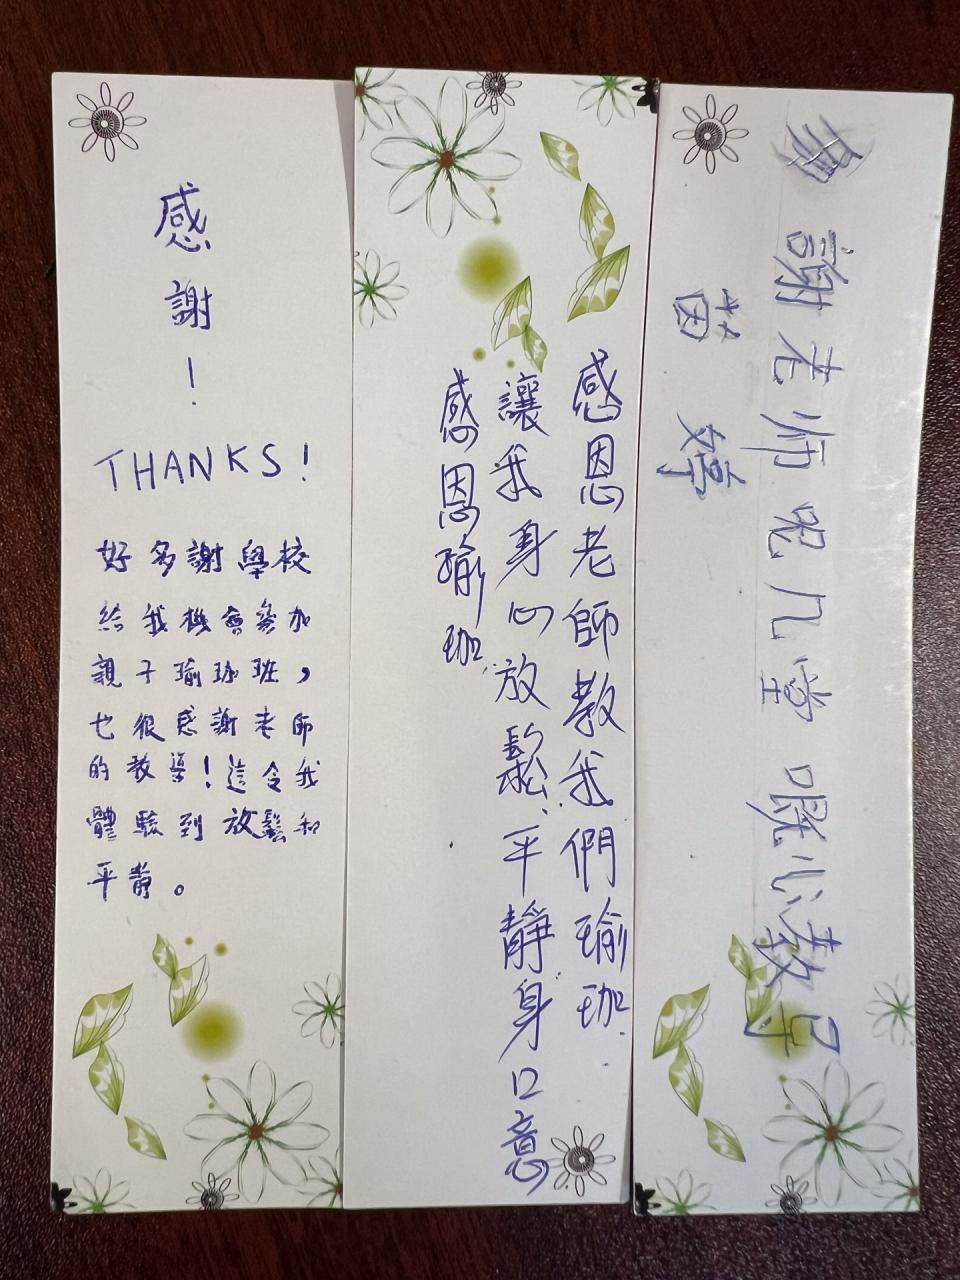 感謝！
THANKS!
好多謝學校
給我機會參加
親子瑜珈班，
也很感謝老師
的教導！這令我
體驗到放鬆和
平靜。
感恩老師教我們瑜珈.
讓我身心放鬆、平靜身口意
感恩瑜珈.
多謝老师呢几堂嘅心教导
茵婷